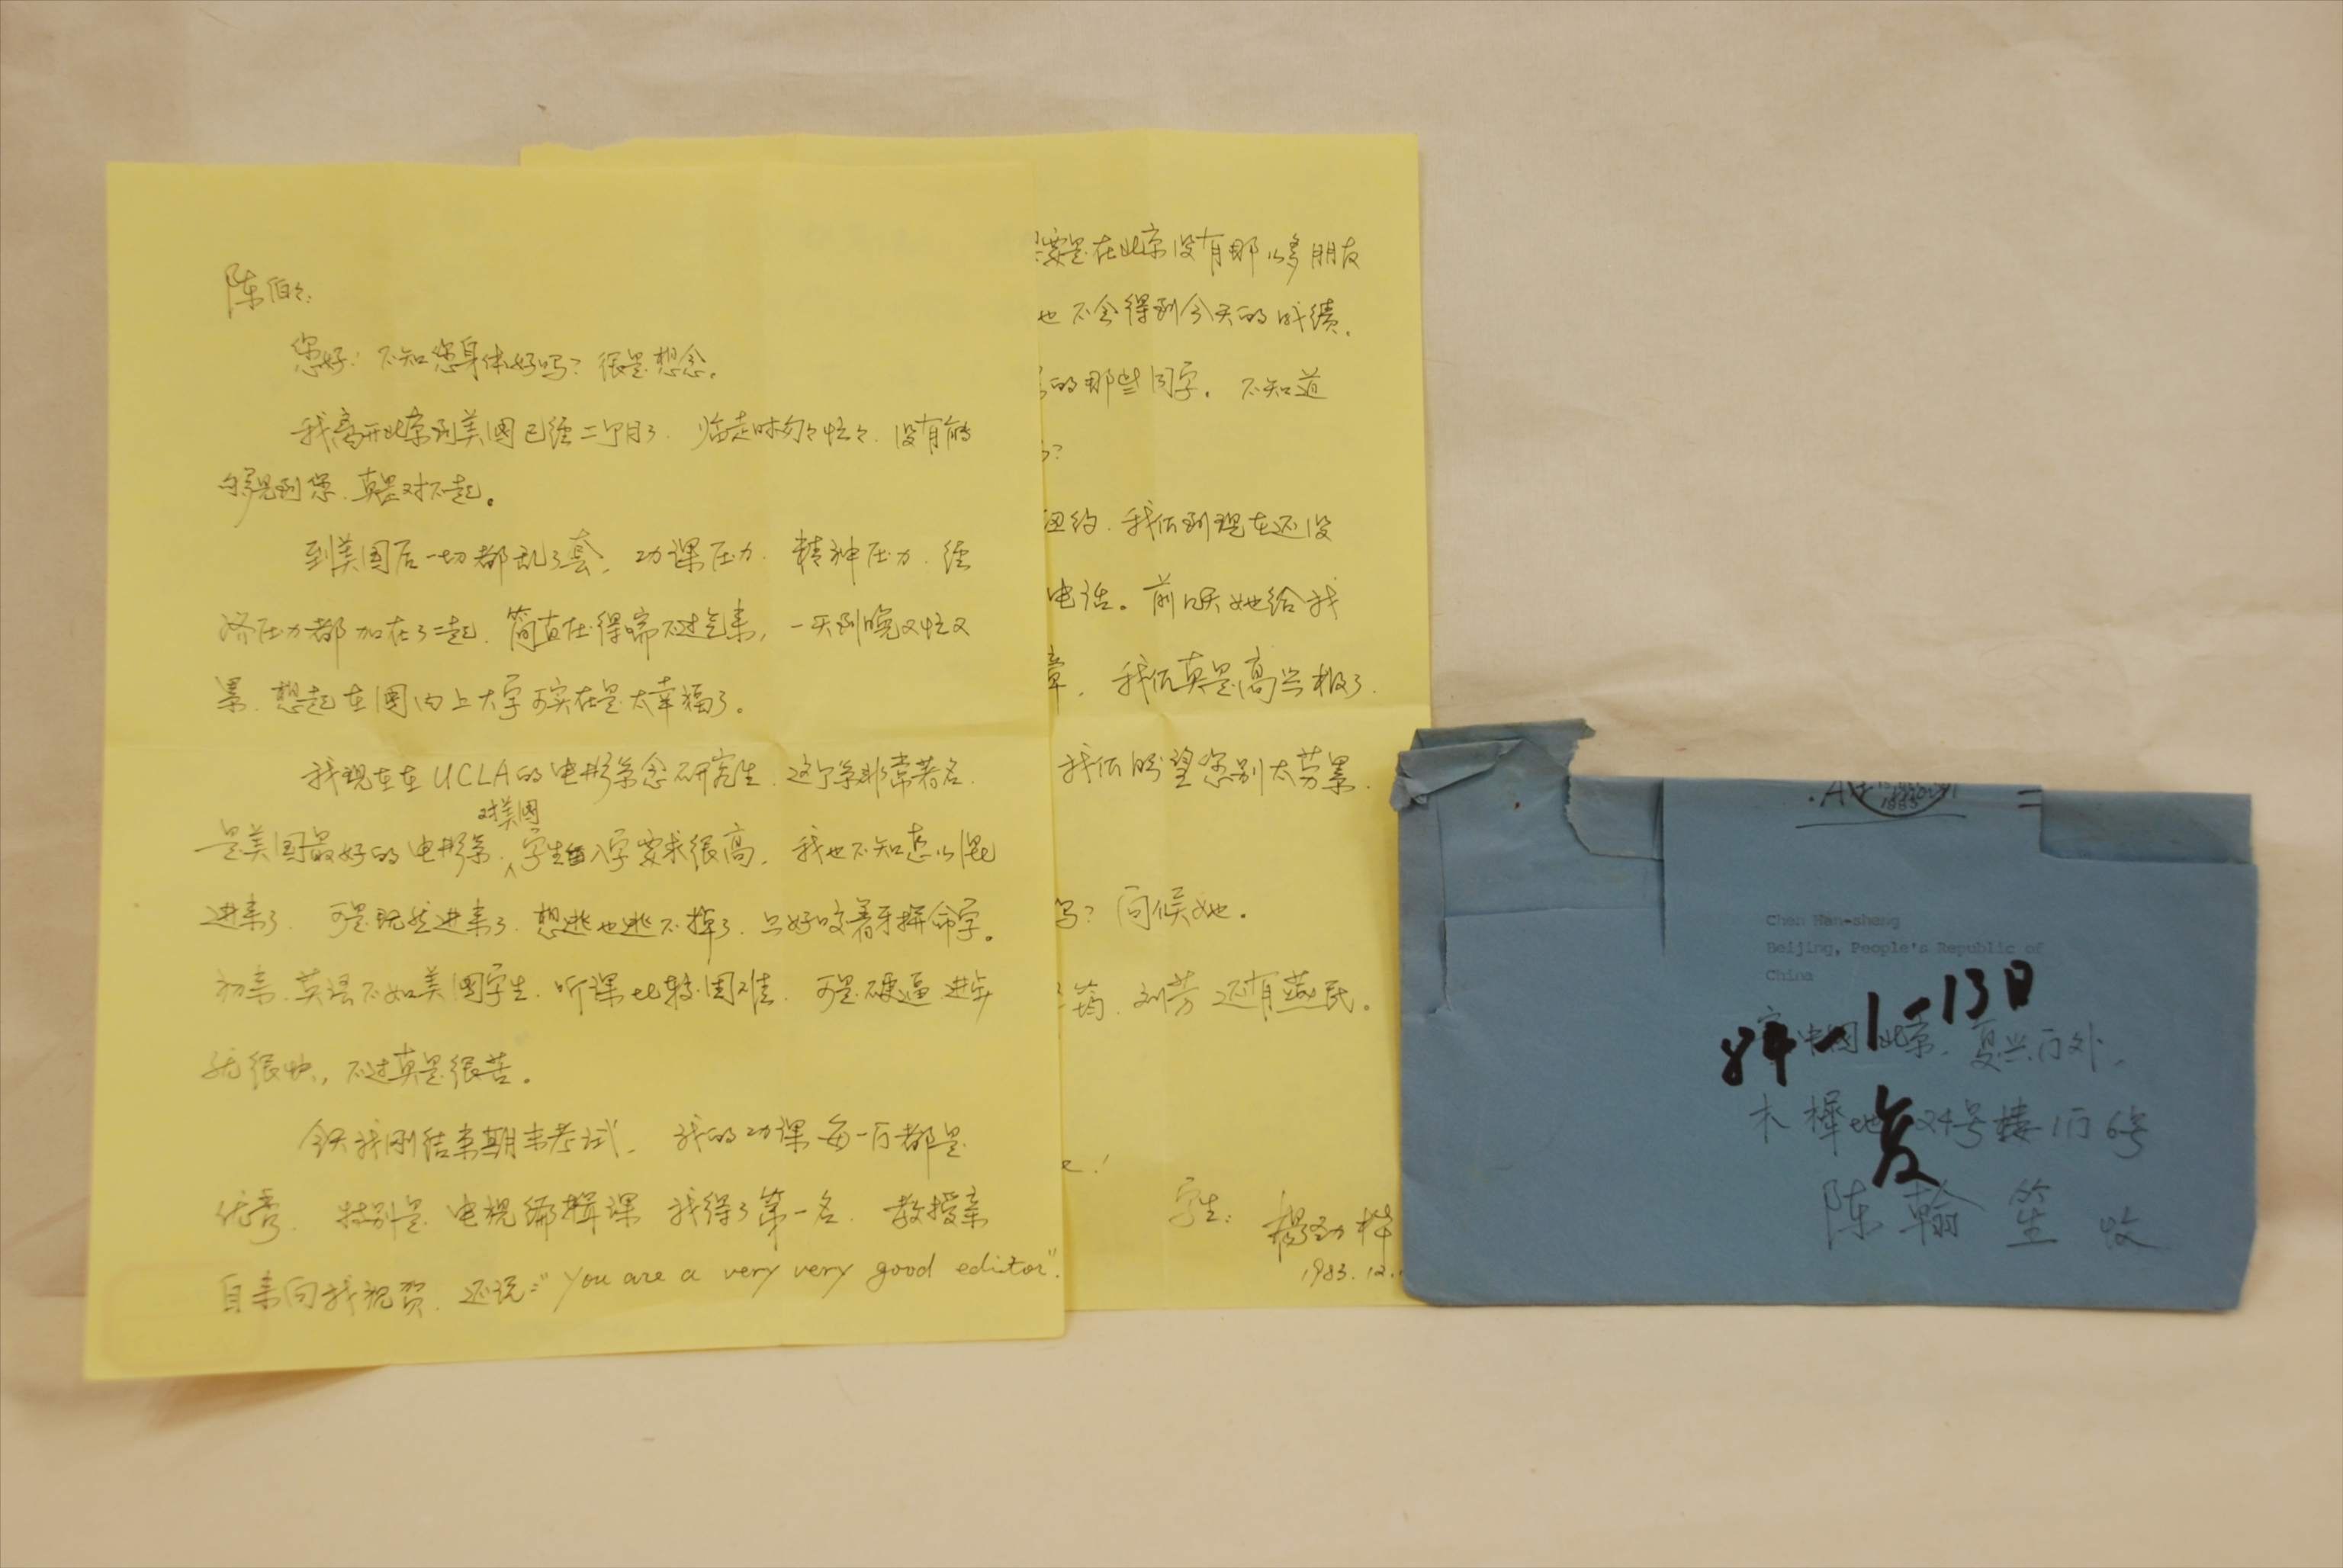 陈伯々:
您好! 不知您身体好吗? 很是想念。
我离开北京到美國已经二个月了. 临走时匆々忙々. 没有能
够见到您. 真是对不起。
到美国后一切都乱了套. 功课压力. 精神压力. 经
济压力都加在了一起. 简直压得喘不过气来, 一天到晚又忙又
累. 想起在國内上大学可实在是太幸福了。
我现在在UCLA的电影系念研究生. 这个系非常著名.
是美国最好的电影系. 对美國学生入学要求很高. 我也不知怎么混
进来了. 可是既然进来了. 想逃也逃不掉了. 只好咬着牙拼命学。
初来. 英语不如美國学生. 听课比较困难. 可是硬逼 进步
就很快, 不过真是很苦。
今天我刚结束期末考试. 我的功课每一门都是
优秀. 特别是 电视编辑课 我得了第一名. 教授亲
自来向我祝贺. 还说:"you are a very very good editor".
要是在北京没有那么多朋友
也不会得到今天的成绩.
的那些同学. 不知道
?
纽约. 我们到现在还没
电话。前几天她给我
章. 我们真是高兴极了.
我们盼望您别太劳累.
吗? 问候她.
筠. 刘芳 还有燕民。
学生: 楊
1983.12.
1983
Chen Han-sheng
Beijing, People's Republic of
China
84-1-13日
复
中国北京. 复兴门外.
木樨地24号楼1门6号
陈翰笙 收